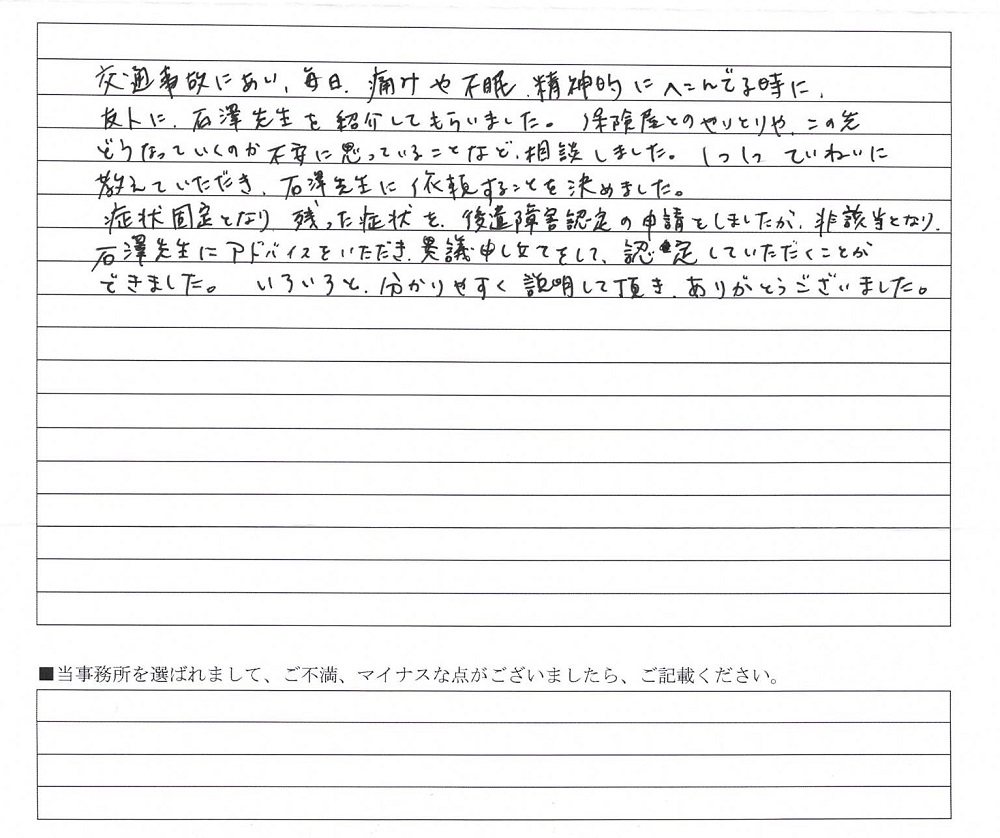 交通事故にあい、毎日、痛みや不眠、精神的にへこんでる時に、
友人に、石澤先生を紹介してもらいました。保険屋とのやりとりや、この先
どうなっていくのか不安に思っていることなど、相談しました。1つ1つていねいに
教えていただき、石澤先生に依頼することを決めました。
症状固定となり、残った症状を、後遺障害認定の申請をしましたが、非該当となり、
石澤先生にアドバイスをいただき、異議申し立てをして、認定していただくことが
できました。いろいろと、分かりやすく説明して頂き、ありがとうございました。
■当事務所を選ばれまして、ご不満、マイナスな点がございましたら、ご記載ください。